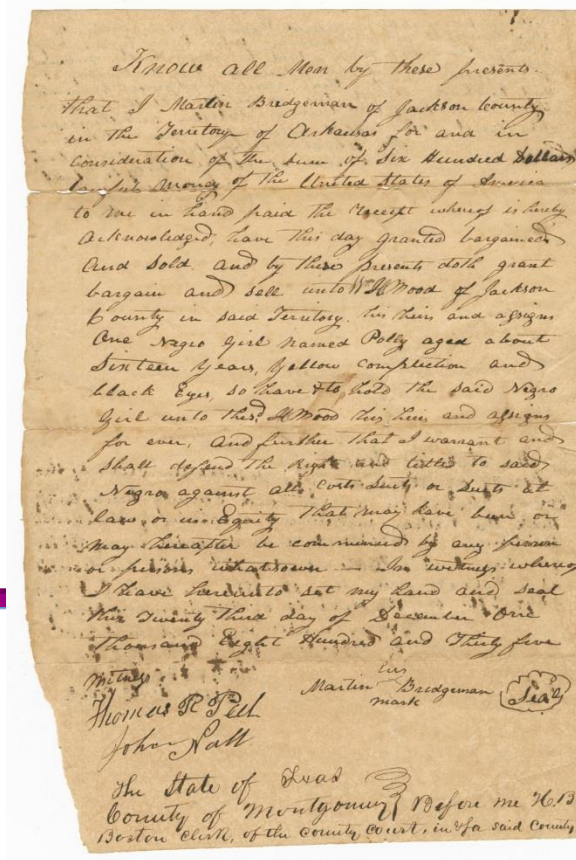 Know all Men by these presents.
that I Martin Bridgeman of Jackson County
in the Territory of Arkansas for and in
consideration of the sum of Six Hundred Dollars
lawful money of the United States of America
to me in hand paid the receipt whereof is hereby
acknowledged, have this day granted bargained
and sold, and by these presents doth grant
bargain and sell unto Wm H Wood of Jackson
County in said Territory. his heirs and assigns
One Negro Girl named Polly aged about
Sixteen Years, Yellow complection and
black Eyes, to have & to hold the said Negro
Girl unto the sd. H Wood his heirs and assigns
for ever, and further that I warrant and
shall defend the Right and tittle to said
Negro against all costs suits or suits at
law or in Equity that may have been or
may hereafter be commenced by any person
or persons whatsoever — In witness whereof
I have hereunto set my hand and seal
this Twenty third day of December One
Thousand Eight Hundred and Thirty five
Witness
his
Martin Bridgeman Seal
mark
Thomas R
John
The State of Texas
County of Montgomery Before me H.B
Boston Clerk, of the county court, in & fa said County